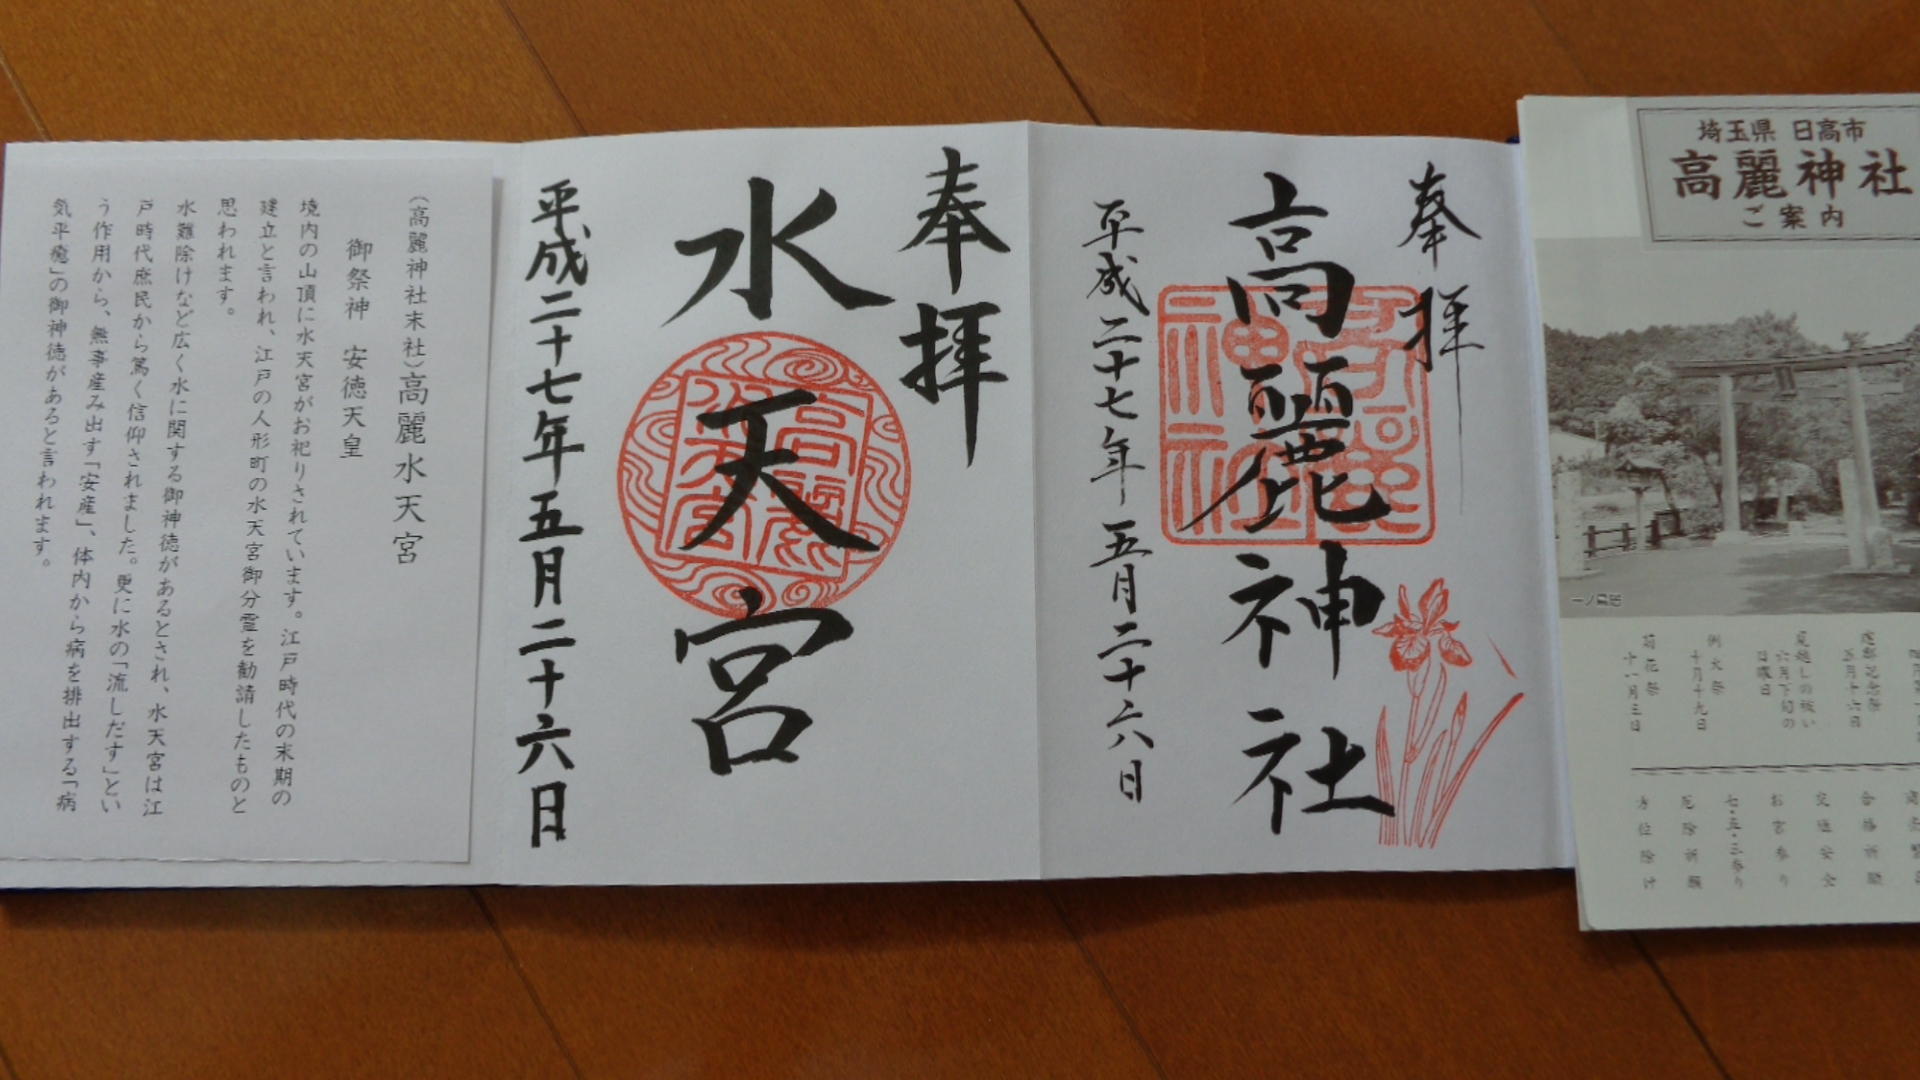 埼玉県 日高市
高麗神社
ご案内
一ノ鳥居
建郡記念祭
五月十六日
夏越しの祓い
六月下旬の
日曜日
例大祭
十月十九日
菊花祭
十一月三日
合格祈願
交通安全
お宮参り
七・五・三参り
厄除祈願
方位除け
奉拝
高麗神社
平成二十七年五月二十六日
奉拝
水天宮
平成二十七年五月二十六日
(高麗神社末社)高麗水天宮
御祭神 安徳天皇
境内の山頂に水天宮がお祀りされています。江戸時代の末期の
建立と言われ、江戸の人形町の水天宮御分霊を勧請したものと
思われます。
水難除けなど広く水に関する御神徳があるとされ、水天宮は江
戸時代庶民から篤く信仰されました。更に水の「流しだす」とい
う作用から、無事産み出す「安産」、体内から病を排出する「病
気平癒」の御神徳があると言われます。